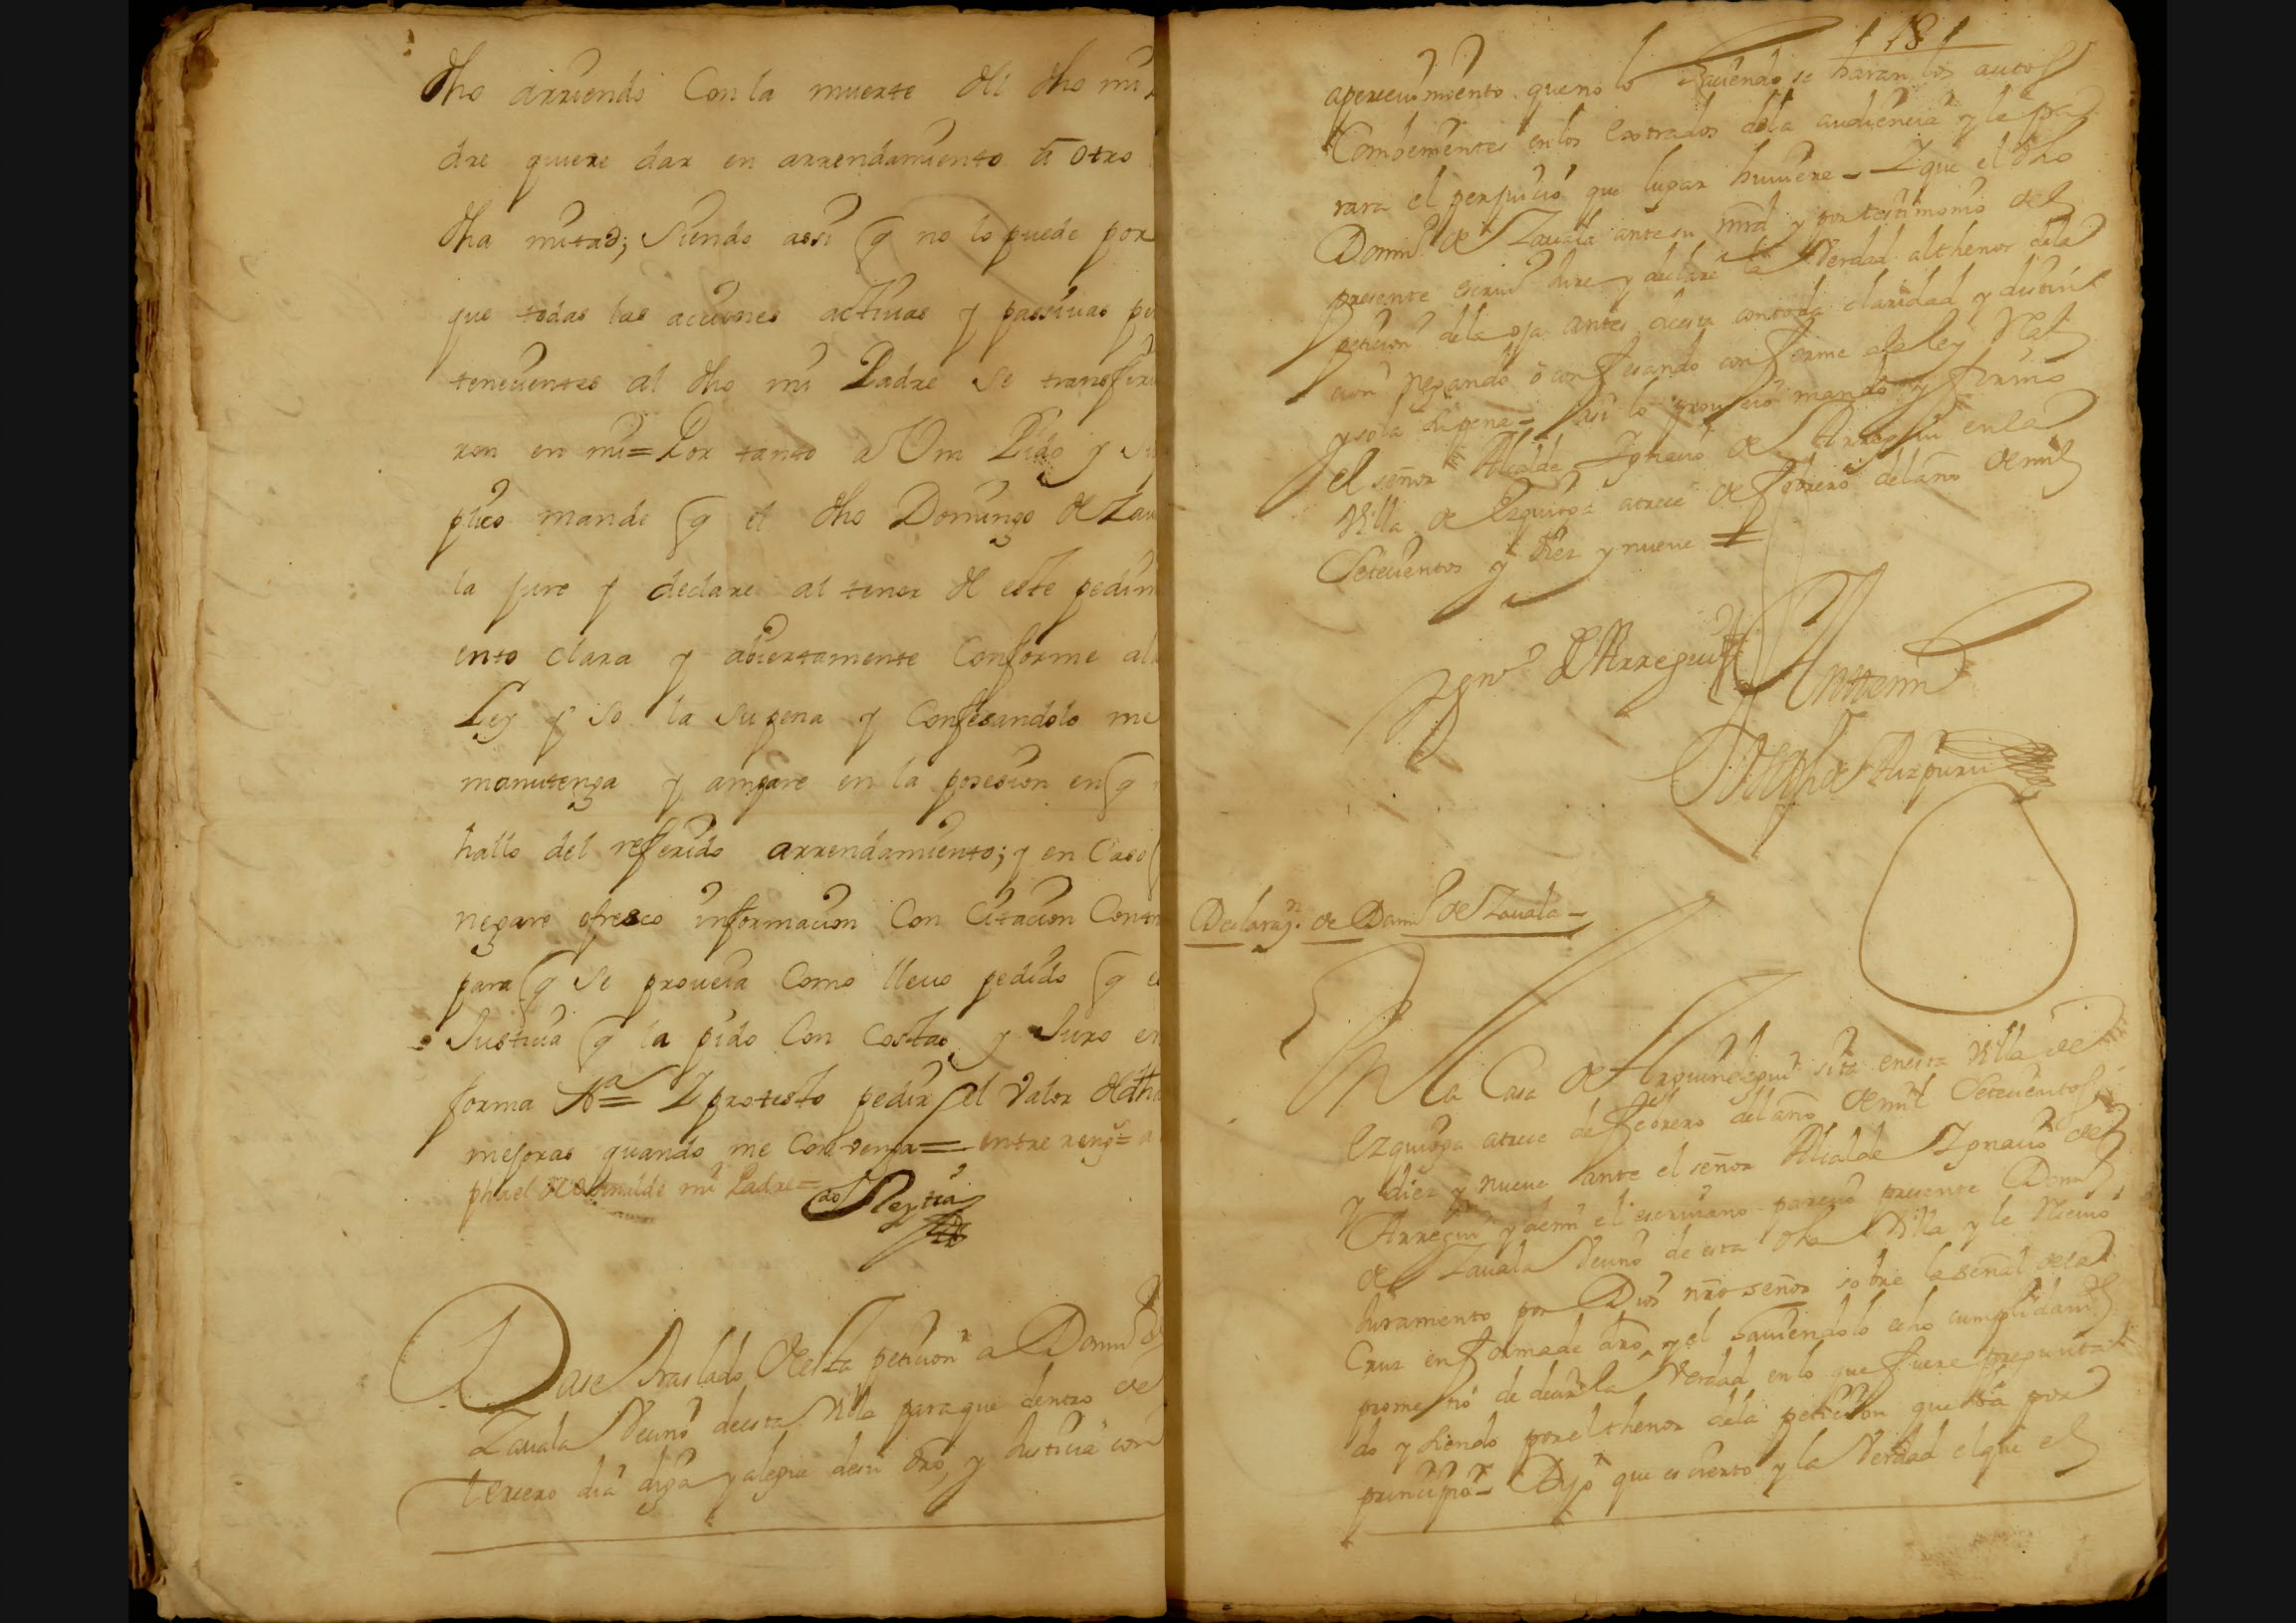 dho arriendo Con la muerte del dho mi
dre quiere dar en arrendamiento a otro
dha mitad; siendo assi q no lo puede por
que todas las acciones activas y passivas pe
tenecientes al dho mi Padre se transfiri
ren en mi= Por tanto a Vm Pido y su
plico mande q el dho Domingo de Zau
la jure y declare al tenor de este pedim
ento clara y abiertamente Conforme a la
Ley y so la su pena y Confesandolo me
manutenga y ampare en la posesion en q
hallo del referido arrendamiento; y en Caso
negare ofresco informacion Con Citacion Contr
para q se proveia Como llevo pedido q e
Justicia q la pido Con Costas y Juro en
forma Y protesto pedir el valor de dha
mejoras quando me Convenga= entre reng.=a
phael de mi Padre=
Dase traslado de esta peticion a Domo de
Zauala Vecino de esta Villa para que dentro de
tercero dia diga y alegue de su dro, y Justicia con
181
apercivimiento que no lo haciendo se haran los autos
Combenientes en los estrados de la audiencia y le pa
rara el perjuicio que lugar huuiere - Y que el dho
Domo de Zauala ante su mrd y por testimonio del
presente escriuo Jure y declare la Verdad al thenor de la
peticion de la oja antes de esta con toda claridad y distin
cion negando o confesando conforme a la ley Real
y so la su pena - Asi lo proueio mando y firmo
el señor Alcalde Ignacio de Arregui en la
Villa de Ezquioga a trece de febrero del año de mil
Setecientos y diez y nueve
Igno de Arregui Antemi
Joseph de Aizpuru
Declaraon. de Domo de Zauala -
En la Casa de sita en esta Villa de
Ezquioga a trece de febrero del año de mil Setecientos
y diez y nueve ante el señor Alcalde Ignacio de
Arregui y de mi el escriuano parecio presente Domo
de Zauala Vecino de esta dha Villa y le Reciuio
Juramento por Dios nro señor sobre la señal de la
Cruz en forma de dro, y el haviendolo echo cumplidamte
prometio de decir la Verdad en lo que fuere pregunta
do y siendo por el thenor de la peticion que va por
principio - Dijo que es cierto y la Verdad el que el